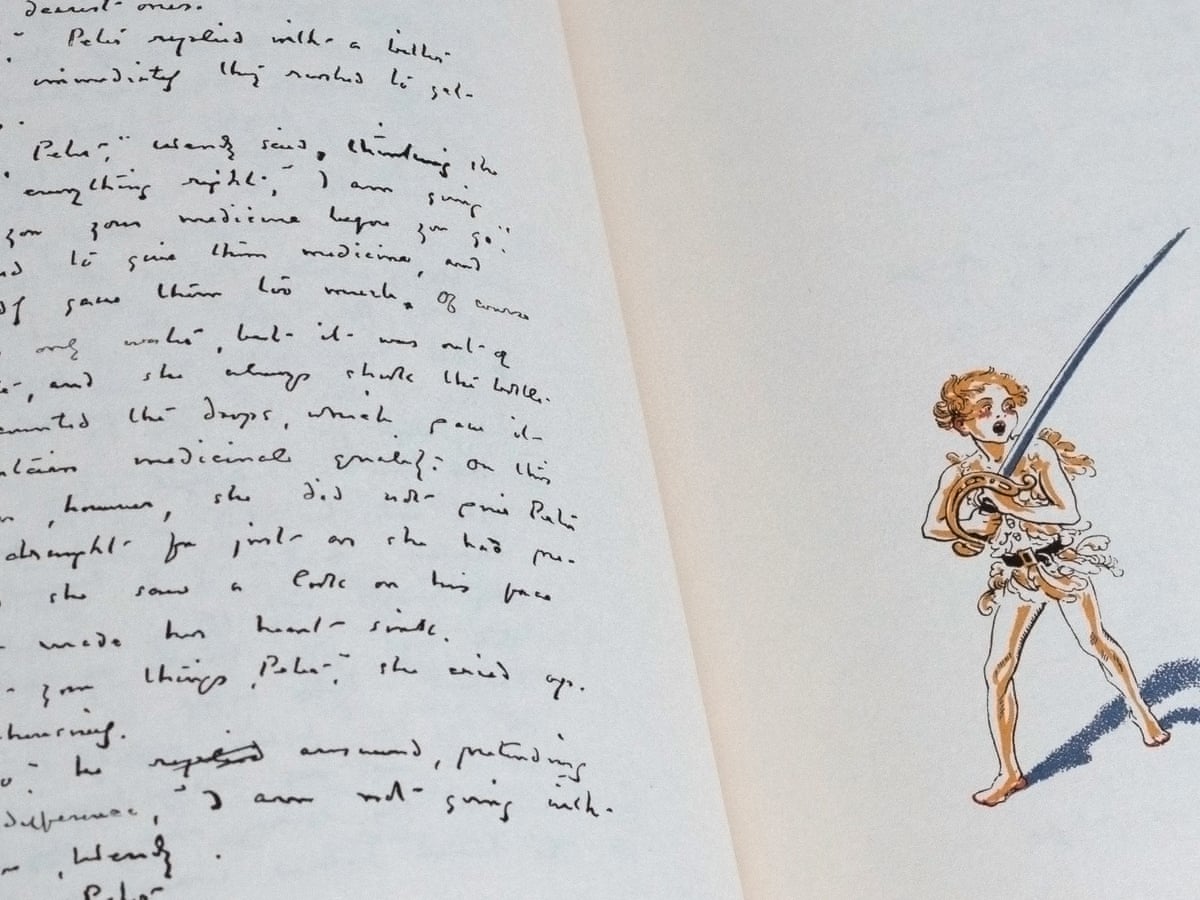 dearest ones.
" Peter replied with a bitter
immediately they rushed to get
Peter," Wendy said, thinking she
everything right, "I am going
you your medicine before you go."
to give them medicine, and
gave them too much. Of course
only water, but it was out of
, and she always shook the bottle
counted the drops, which gave it
certain medicinal quality. On this
, however, she did not give Peter
draught for just as she had pre-
she saw a look on his face
made her heart sink.
your things, Peter," she cried
." he replied answered, pretending
difference, "I am not going with
, Wendy.
Peter